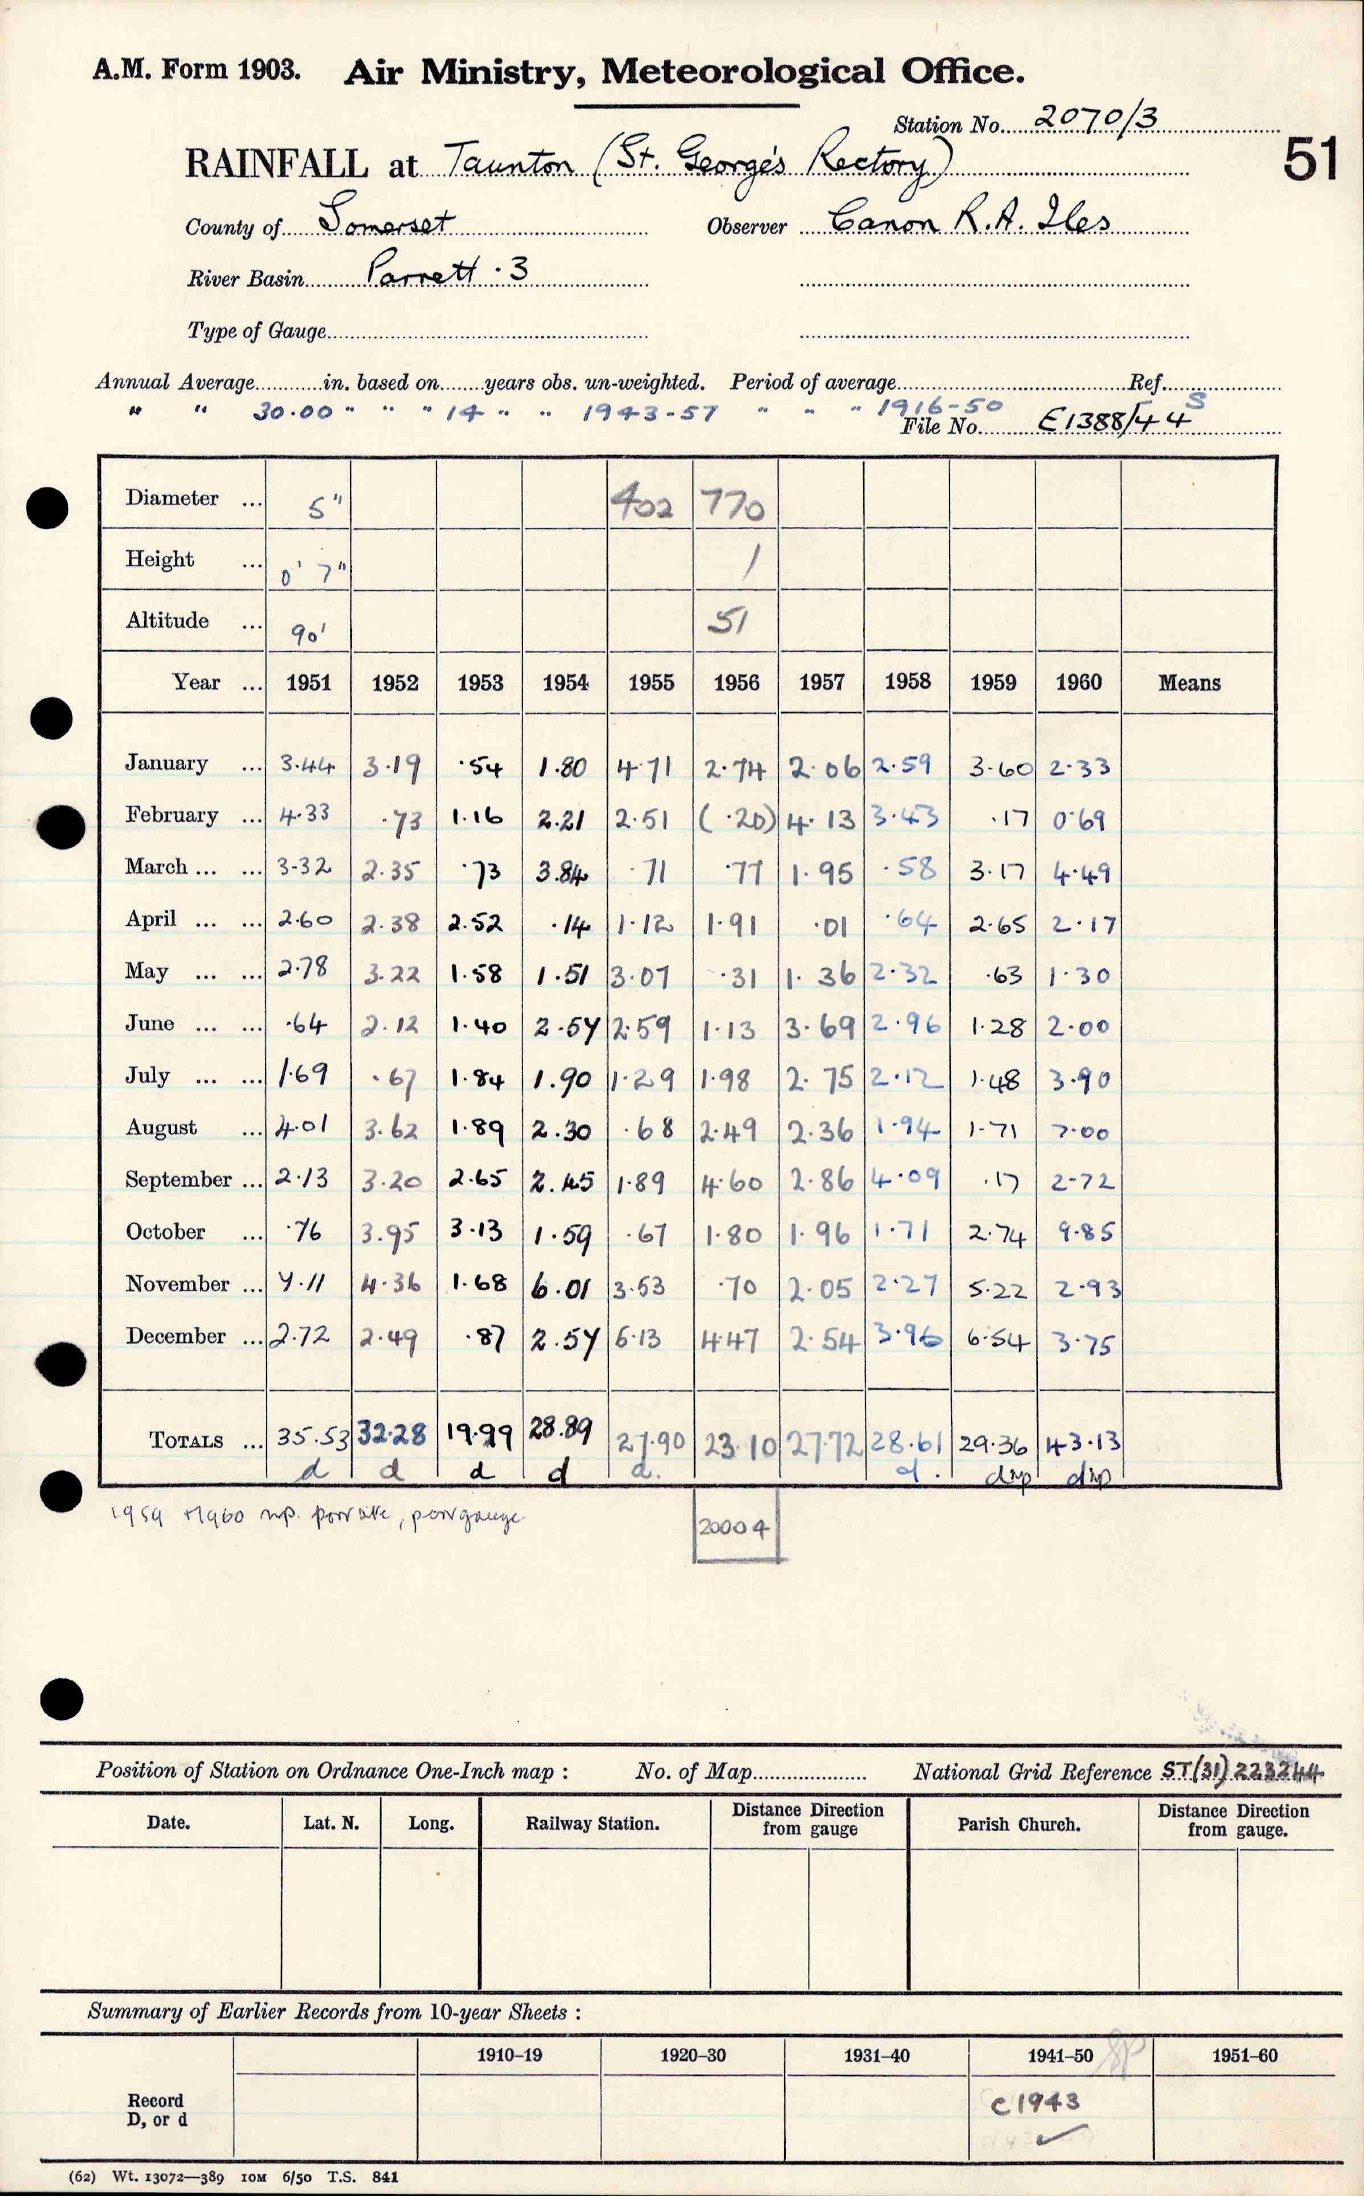 A.M. Form 1903. Air Ministry, Meteorological Office.
Station No. 2070/3
51
RAINFALL at Taunton (St. George's Rectory)
County of Somerset Observer Canon R.A. Iles
River Basin Parrett · 3
Type of Gauge
Annual Average in. based on years obs. un-weighted. Period of average Ref.
" " 30·00 " " " 14 " " 1943-57 " " " 1916-50 S
File No. E1388/44
Diameter ... 5" 402 770
Height ... 0' 7" 1
Altitude ... 90' 51
Year ... 1951 1952 1953 1954 1955 1956 1957 1958 1959 1960 Means
January ... 3·44 3·19 ·54 1.80 4·71 2·74 2·06 2·59 3·60 2·33
February ... 4·33 ·73 1·16 2.21 2·51 (·20) 4·13 3·43 ·17 0·69
March ... ... 3·32 2·35 ·73 3.84 ·71 ·77 1·95 ·58 3·17 4·49
April ... ... 2·60 2·38 2·52 ·14 1·12 1·91 ·01 ·64 2·65 2·17
May ... ... 2·78 3·22 1·58 1·51 3·07 ·31 1·36 2·32 ·63 1·30
June ... ... ·64 2·12 1·40 2·57 2·59 1·13 3·69 2·96 1·28 2·00
July ... ... 1·69 ·67 1·84 1.90 1·29 1·98 2·75 2·12 1·48 3·90
August ... 4·01 3·62 1·89 2.30 ·68 2·49 2·36 1·94 1·71 7·00
September ... 2·13 3·20 2·65 2.45 1·89 4·60 2·86 4·09 ·17 2·72
October ... ·76 3.95 3·13 1·59 ·67 1·80 1·96 1·71 2·74 9·85
November ... 7·11 4·36 1·68 6.01 3·53 ·70 2·05 2·27 5·22 2·93
December ... 2·72 2·49 ·87 2.57 5·13 4·47 2·54 3·96 6·54 3·75
TOTALS ... 35·53 32·28 19·99 28.89 27·90 23·10 27·72 28·61 29·36 43·13
d d d d d. d. dnp dnp
1959 +1960 n.p. poor site, poor gauge
20004
Position of Station on Ordnance One-Inch map : No. of Map National Grid Reference ST(31)223244
Date. Lat. N. Long. Railway Station. Distance Direction from gauge Parish Church. Distance Direction from gauge.
Summary of Earlier Records from 10-year Sheets :
1910–19 1920–30 1931–40 1941–50 1951–60
Record
D, or d
c1943
(62) Wt. 13072—389 10M 6/50 T.S. 841